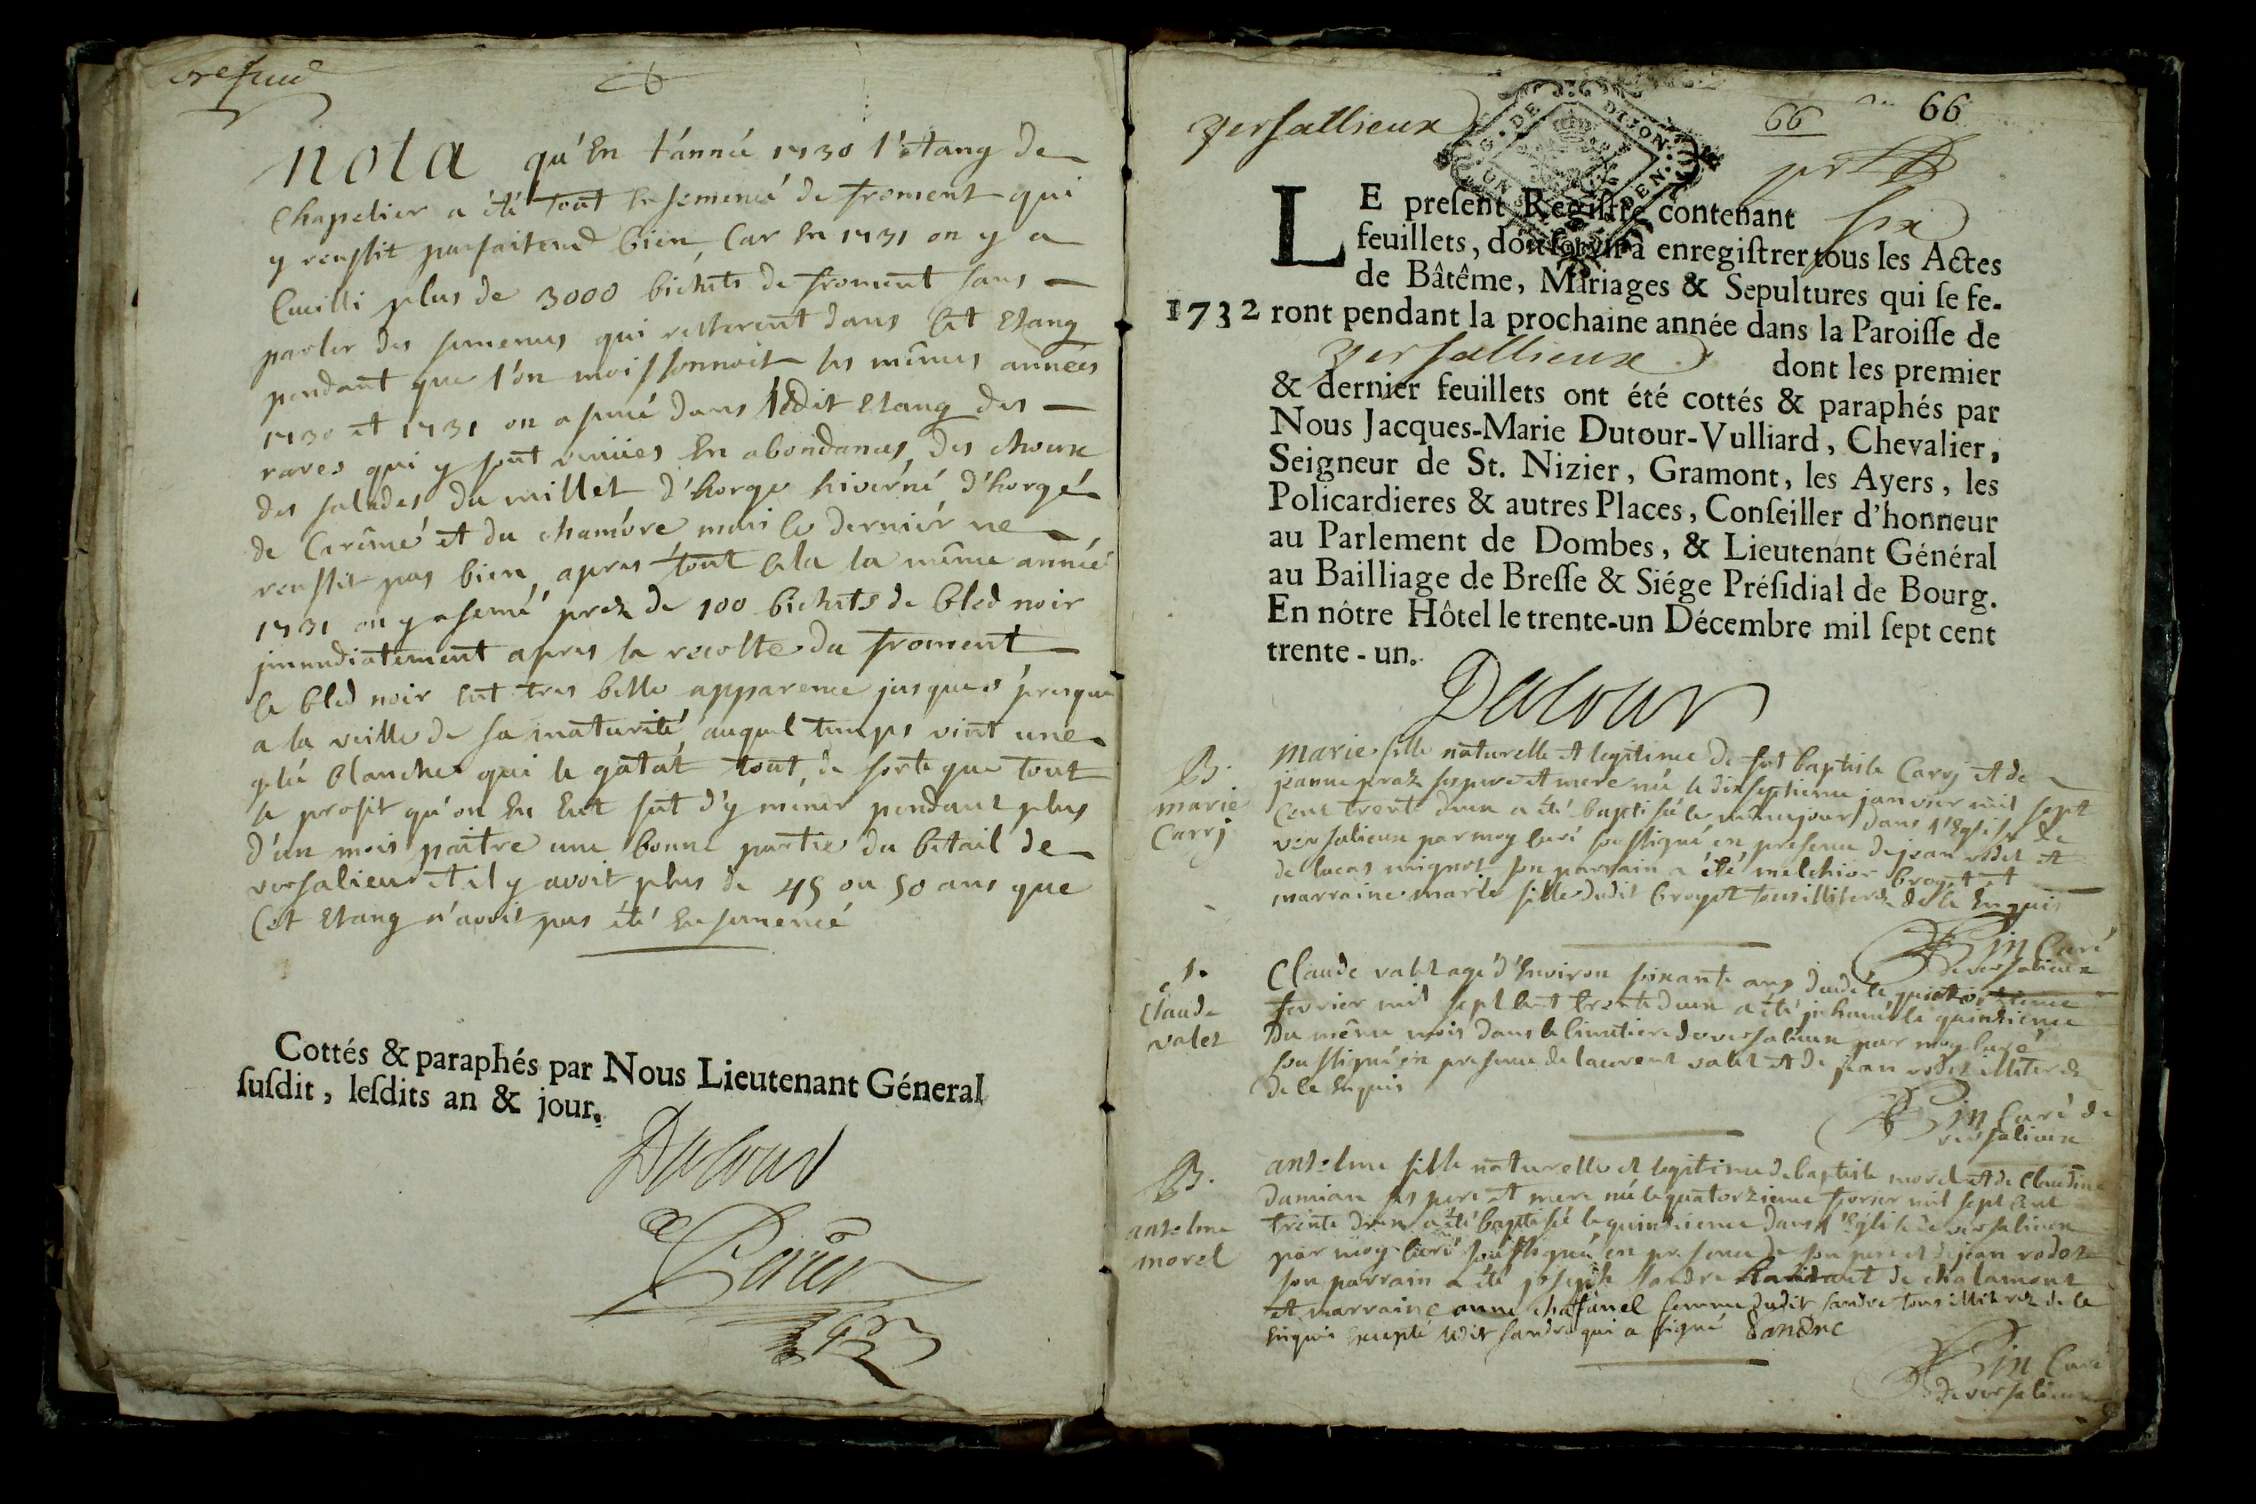 nota qu'en l'année 1730 l'etang de
Chapelier a été tout ensemencé de froment qui
y reussit parfaitemt bien, Car en 1731 on y a
Cueilli plus de 3000 bichets de froment sans
parler des semences qui resterent dans Cet Etang
pendant que l'on moissonnoit les mêmes années
1730 et 1731 on a semé dans ledit etang des
raves qui y sont venües en abondance, des choux
des salades du millet d'horge hiverné, d'horge
de Carême et du chamvre mais le dernier ne
reussit pas bien, apres tout Cela la même année
1731 on y a semé prez de 100 bichets de bled noir
jmmediatement apres la recolte du froment
le bled noir eut tres belle apparence jusques presque
a la veille de sa maturité auquel temps vint une
gelée blanche qui le gatat tout, de sorte que tout
le profit qu'on en eut fut d'y mener pendant plus
d'un mois paitre une bonne partie du betail de
versalieu et il y avoit plus de 45 ou 50 ans que
Cet Etang n'avoit pas été ensemencé
Cottés & paraphés par Nous Lieutenant Géneral
susdit, lesdits an & jour.
Dutour
Versallieux
66 66
LE present Registre contenant six
feuillets, dont servira enregistrer tous les Actes
de Bâtême, Mariages & Sepultures qui se fe-
1732 ront pendant la prochaine année dans la Paroisse de
Versallieux dont les premier
& dernier feuillets ont été cottés & paraphés par
Nous Jacques-Marie Dutour-Vulliard, Chevalier,
Seigneur de St. Nizier, Gramont, les Ayers, les
Policardieres & autres Places, Conseiller d'honneur
au Parlement de Dombes, & Lieutenant Général
au Bailliage de Bresse & Siége Présidial de Bourg.
En nôtre Hôtel le trente-un Décembre mil sept cent
trente-un.
Dutour
B.
marie
Carrj
marie fille naturelle et legitime de fût baptiste Carrj et de
jeanne ses pere et mere née le dix septieme janvier mil sept
Cent trente deux a été baptisée le même jour dans l'Eglise de
versalieux par moy Curé soussigné en presence de jean rodet et
de lucas mignot son parrain a été melchior broyet et
marraine marie fille dudit broyet tous illiterez de Ce Enquis
Curé
de versalieux
S.
Claude
valet
Claude valet agé d'environ soixante ans
fevrier mil sept Cent trente deux a été jnhumé le quinzieme
du même mois dans le Cimetiere de versalieux par moy Curé
soussigné en presence de laurent valet et de jean rodet illiterez
de Ce Enquis
Curé de
versalieux
B.
antelme
morel
antelme fille naturelle et legitime de baptiste morel et de Claudine
damian ses pere et mere née le quatorzieme fevrier mil sept Cent
trente deux a été baptisée le quinzieme dans l'Eglise de versalieux
par moy Curé soussigné en presence de son pere et de jean rodet
son parrain a été joseph sandre de chalamont
et marraine anne femme dudit sandre tous illiterez de Ce
Enquis Excepté ledit sandre qui a signé Sandre
Curé
de versalieux